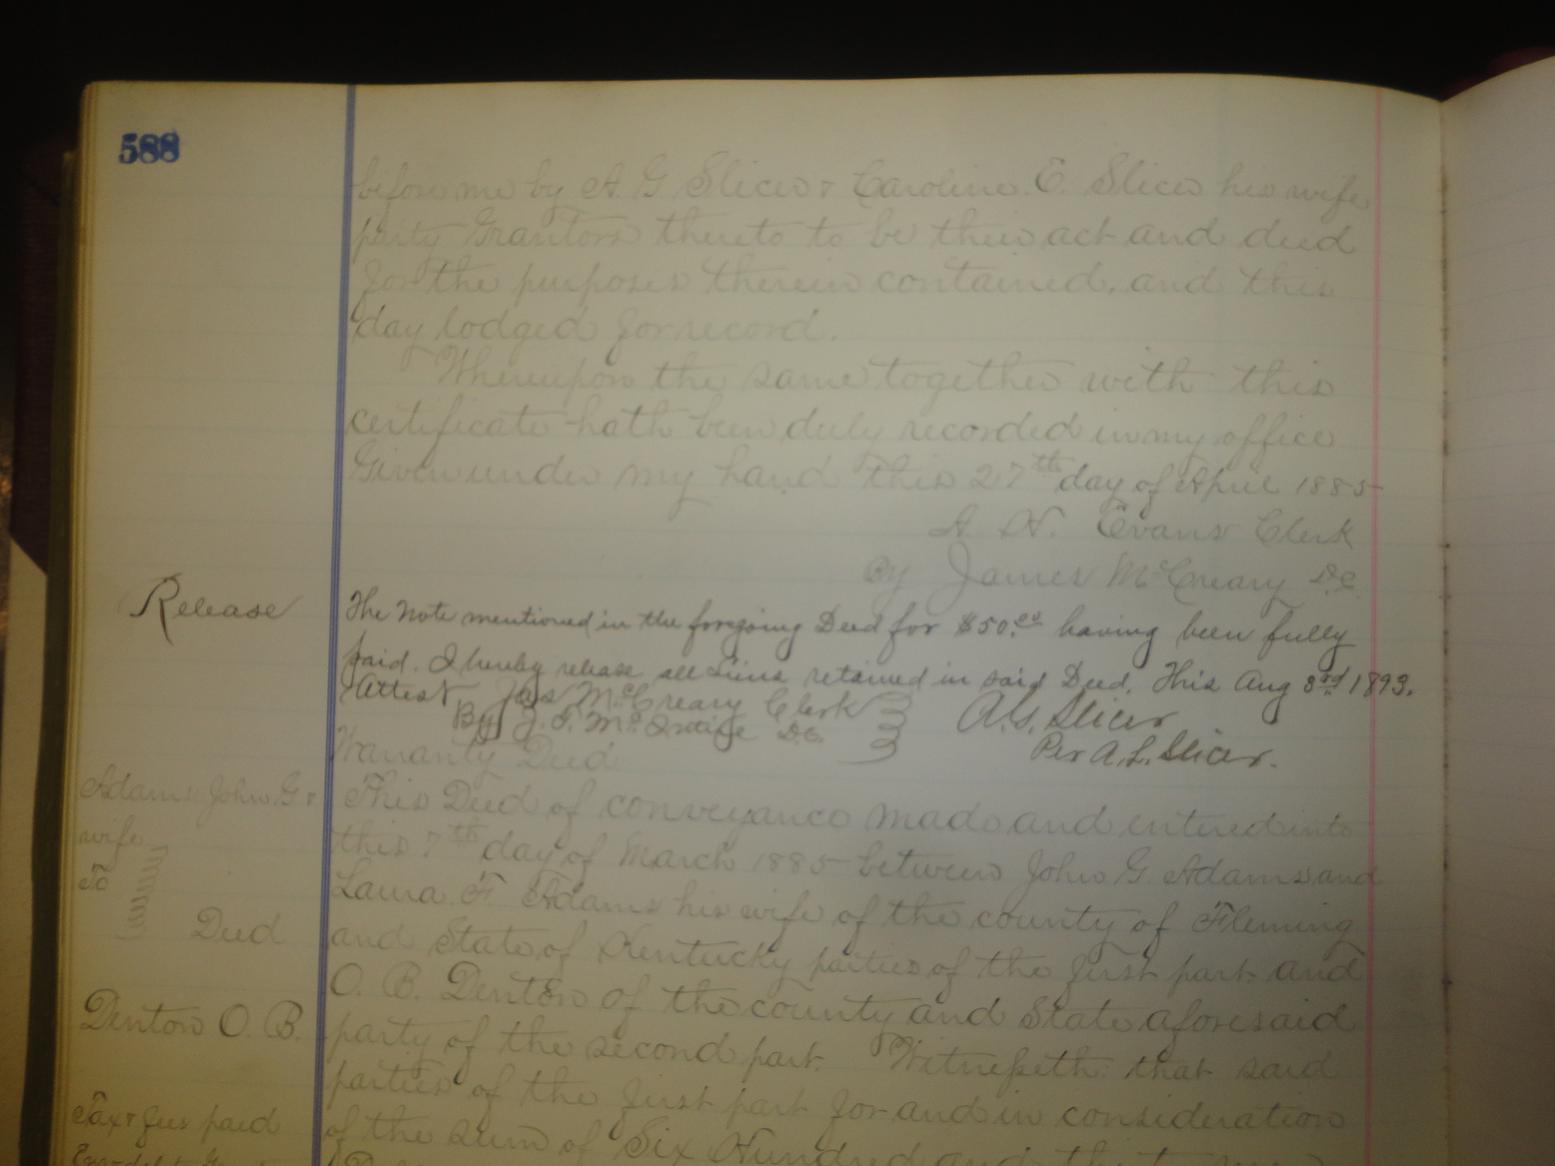 588
before me by A. G. Slicer & Caroline E. Slicer his wife
party Grantors thereto to be their act and deed
for the purposes therein contained, and this
day lodged for record.
Whereupon the same together with this
certificate hath been duly recorded in my office
Given under my hand this 27th day of April 1885
A. H. Evans Clerk
By James McCreary D.C.
Release
The Note mentioned in the foregoing Deed for $50.00 having been fully
paid. I hereby release all Liens retained in said Deed. This Aug 3rd 1893.
Attest Jas McCreary Clerk
A. G. Slicer
By J. T. McIntire D.C.
Per A. L. Slicer.
Warranty Deed
Adams John G &
wife
To
Deed
Denton O. B.
Tax & fees paid
This Deed of conveyance made and entered into
this 7th day of March 1885 between John G. Adams and
Laura F. Adams his wife of the county of Fleming
and State of Kentucky parties of the first part and
O. B. Denton of the county and State aforesaid
party of the second part. Witnesseth: that said
parties of the first part for and in consideration
of the sum of Six Hundred and